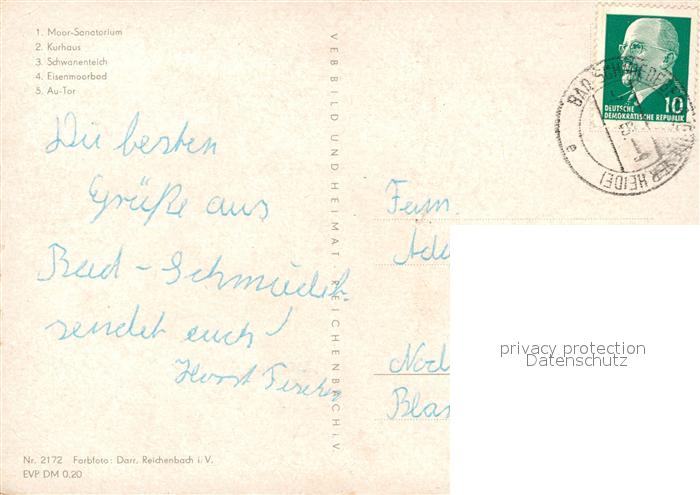 1. Moor-Sanatorium
2. Kurhaus
3. Schwanenteich
4. Eisenmoorbad
5. Au-Tor
Die besten
Grüße aus
Bad-Schmiedeb.
sendet euch!
Horst Fischer
Nr. 2172 Farbfoto: Darr, Reichenbach i. V.
EVP DM 0,20
VEB BILD UND HEIMAT REICHENBACH I.V.
10
DEUTSCHE
DEMOKRATISCHE REPUBLIK
BAD SCHMIEDEBERG HEIDE)
e
Fam.
Ado
privacy protection
Datenschutz